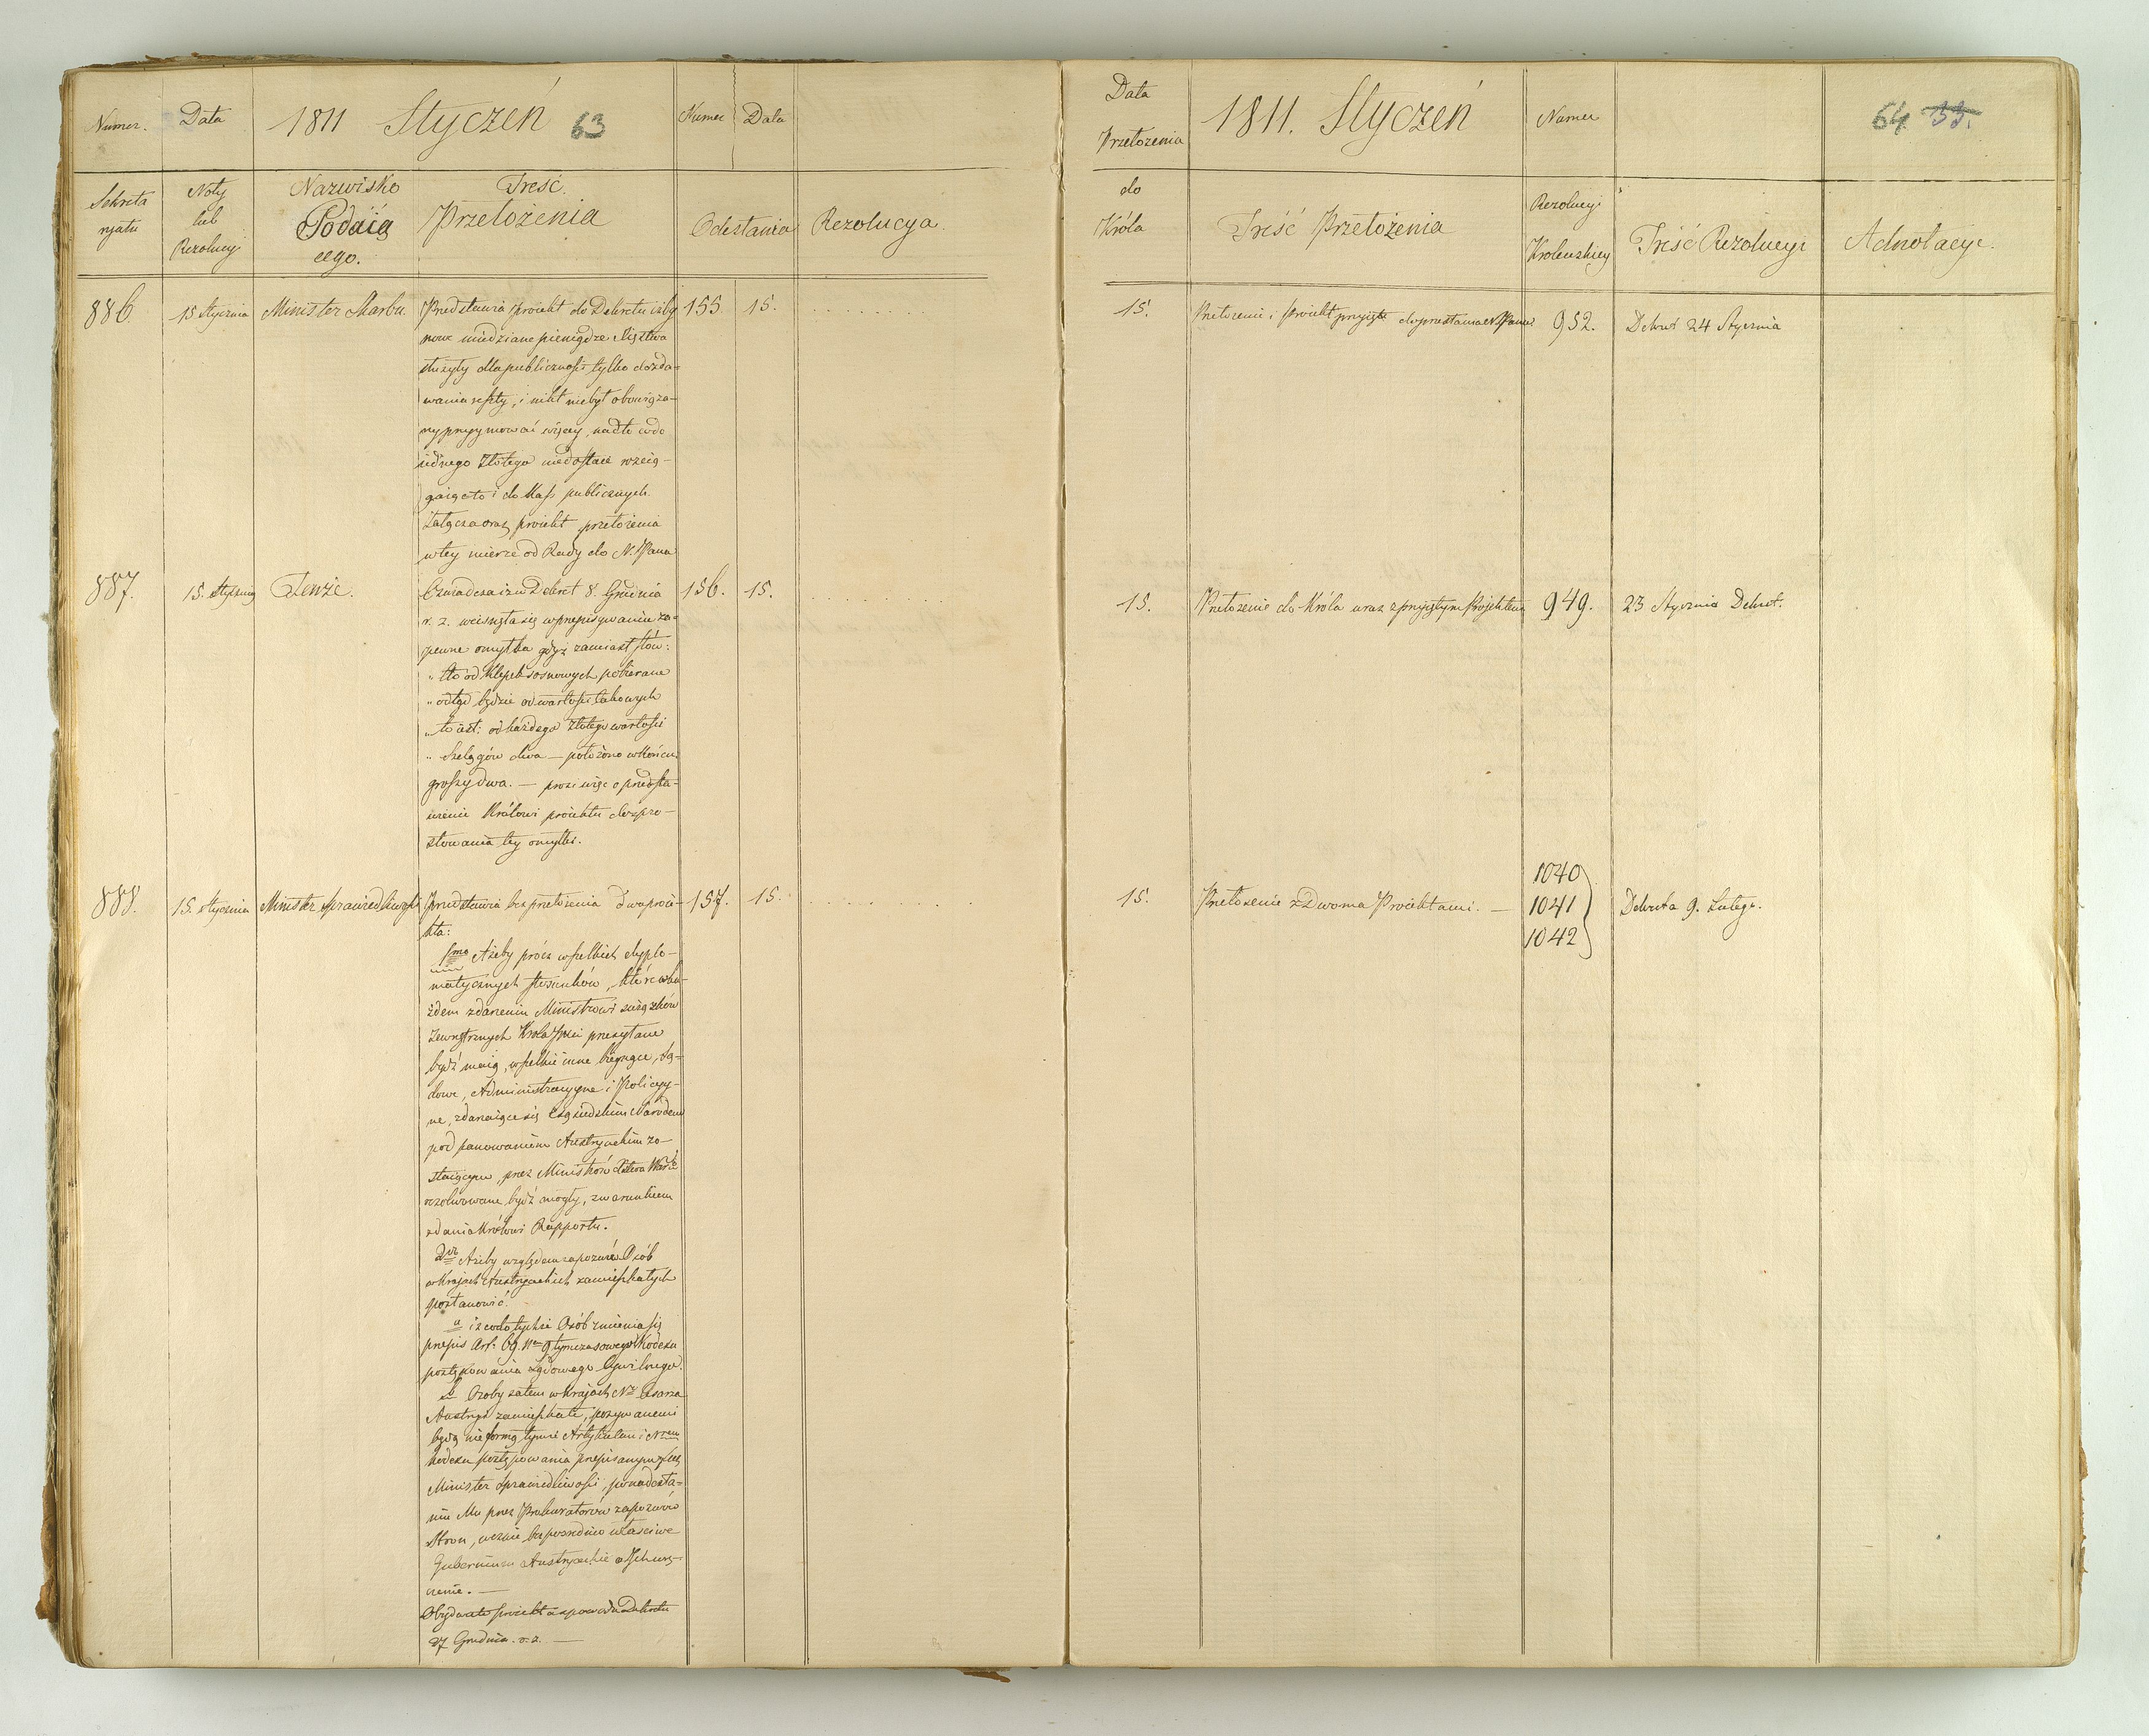 Numer. Data 1811 Styczeń 63 Numer Data
Sekreta Noty Nazwisko Treść
ryatu lub Podaią Przełożenia Odesłania Rezolucya.
Rezolucyi cego.
886. 15 Stycznia Minister Skarbu. Przedstawia proiekt do Dekretu iżby 155 15.
nowe miedziane pieniądze Xięstwa
służyły dla publiczności tylko do zda=
wania reszty, i nikt niebył obowiąza-
ny przyymować więcey, nadto co do
iednego Złotego niedostaie rozcią-
gaiąc to i do Kass publicznych.
Załącza oraz proiekt przełożenia
w tey mierze od Rady do N. Pana
887. 15. Stycznia Tenże. Oświadcza iż w Dekret 8. Grudnia 156. 15.
r. z. wcisnęła się w przepisywaniu za=
pewne omyłka gdyż zamiast słów:
„ cło od Klepek sosnowych pobierane
„ odtąd będzie od wartości takowych
„ to iest: od każdego Złotego wartości
„ Szelągów dwa — położono w końcu
groszy dwa. — prosi więc o przedsta=
wienie Królowi proiektu do spro-
stowania tey omyłki.
888. 15. Stycznia Minister Sprawiedliwości Przedstawia bez przełożenia dwa proie- 157. 15.
kta:
1mo Ażeby prócz wszelkich dyplo-
matycznych stosunków, które w ka-
żdem zdarzeniu Ministrowi związków
Zewnętrznych Króla Jmci przesyłane
bydź maią, wszelkie inne bieżące, Są=
dowe, Administracyyne i Policyy-
ne, zdarzaiące się z sąsiedzkim Narodem
pod panowaniem Austryackim zo-
staiącym, przez Ministrów Xstwa Warsz
rezolwowane bydź mogły, z warunkiem
zdania Królowi Rapportu.
2do Ażeby względem zapozwów Osób
w Krajach Austryackich zamieszkałych
postanowić.
a iż co do tychże Osób zmienia się
przepis Art. 69. Nro 9 tymczasowego Kodexu
postępowania Sądowego Cywilnego.
b Osoby zatem w Krajach N. Cesarza
Austryi zamieszkałe, pozywanemi
będą nie formą tymże Artykułem i Nrem
Kodexu postępowania przepisanym, lecz
Minister Sprawiedliwości, po nadesła=
niu Mu przez Prokuratorów zapozwów
Stron, wezwie bezpośrednio właściwe
Gubernium Austryackie o Ich wrę-
czenie. —
Obydwa te proiekta z powodu Dekretu
27 Grudnia r. z. —
Data 1811. Styczeń Numer 64 33.
Przełożenia
do Rezolucyi
Króla Treść Przełożenia Królewskiey Treść Rezolucyi Adnotacye.
15. Przełożenie i proiekt przyięte do przesłania N. Panu. 952. Dekret 24 Stycznia
15. Przełożenie do Króla wraz z przyiętym Projektem 949. 23 Stycznia Dekret.
1040
15. Przełożenie z Dwoma Proiektami. — 1041 Dekreta 9. Lutego.
1042